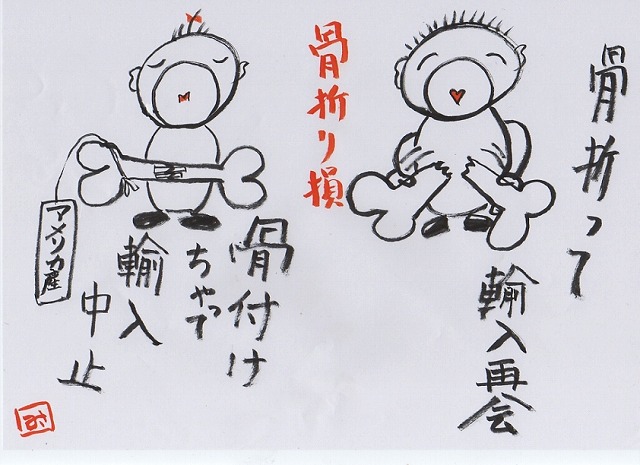 骨折って
輸入再会
骨折り損
骨付け
ちゃって
輸入
中止
アメリカ産